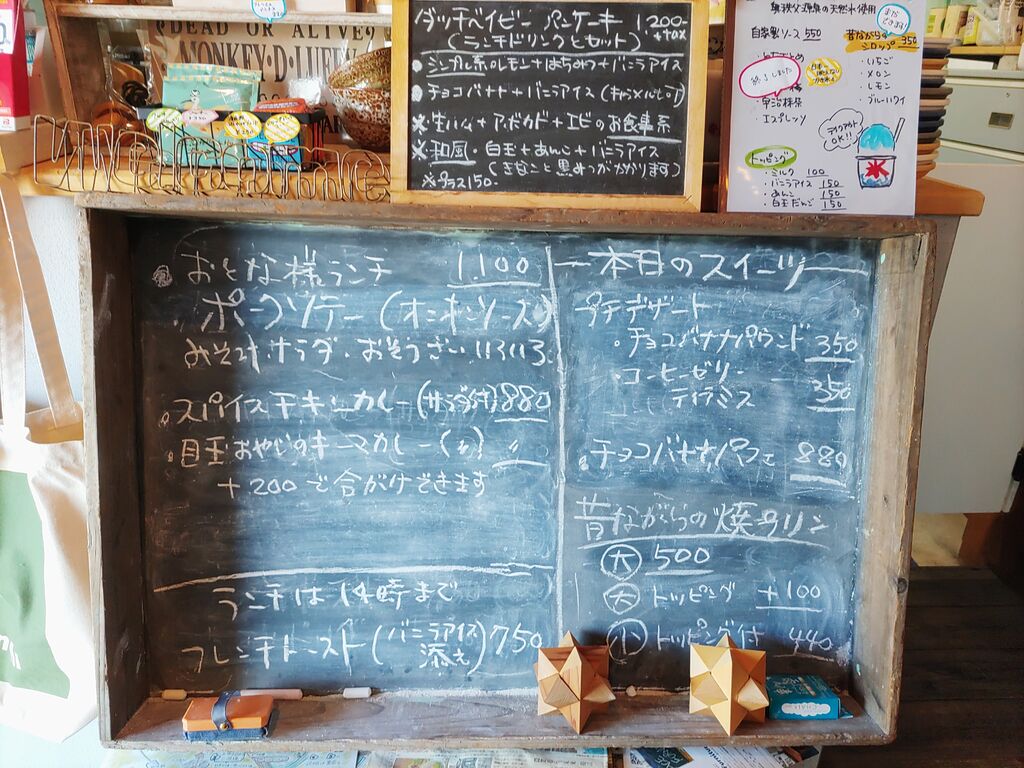 DEAD OR ALIVE
MONKEY・D・LUFFY
ダッチベイビー パンケーキ 1200-
+tax
(ランチドリンクとセット)
シンプル系 レモン+はちみつ+バニラアイス
チョコバナナ+バニラアイス (キャラメルも可)
生ハム+アボカド+エビのお食事系
和風・白玉+あんこ+バニラアイス
(きなこと黒みつがかかります)
※プラス150-
天然水使用
まだできます!
自家製ソース 550
昔ながらのシロップ 350
終了しました
・いちご
・メロン
・レモン
・ブルーハワイ
・宇治抹茶
・エスプレッソ
テイクアウトOK!!
トッピング
・ミルク 100
・バニラアイス 150
・あんこ 150
・白玉だんご 150
おとな様ランチ 1,100
ポークソテー(オニオンソース)
みそ汁・サラダ・おそうざい
スパイスチキンカレー(サラダ付)880
目玉おやじのキーマカレー(〃) 〃
+200で合がけできます
ランチは14時まで
フレンチトースト(バニラアイス添え)750
本日のスイーツ
プチデザート
・チョコバナナパウンド 350
・コーヒーゼリー
ティラミス 350
チョコバナナパフェ 880
昔ながらの焼プリン
大 500
大 トッピング +100
小 トッピング付 440